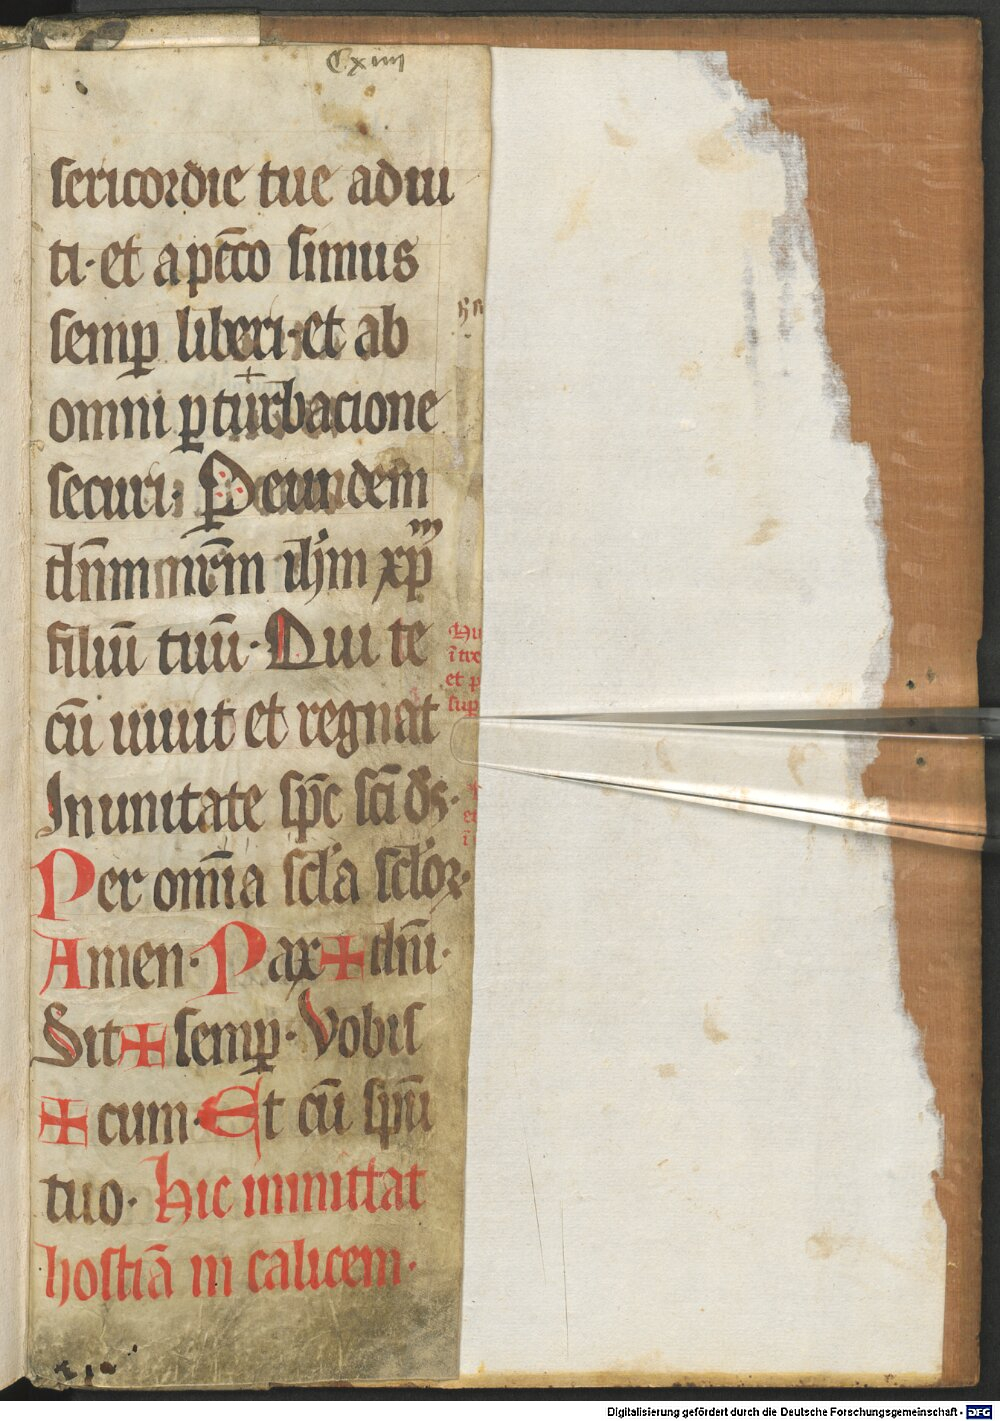 C xiiij
sericordie tue adiu
ti· et a pcc̄o simus
semp̲ liberi· et ab
omni p̲turbacione
securi· P̲ eundem
dn̄m nr̄m ih̄m xp̄m
filiū tuū· Qui te
cū uiuit et regnat
In unitate sp̄c sc̄i ds̄·
Per om̄ia scl̄a scl̄oꝝ·
Amen· Pax + dn̄i·
Sit + semp̲· Vobis
+ cum· Et cū sp̄u
tuo· Hic immittat
hostiā in calicem·
Digitalisierung gefördert durch die Deutsche Forschungsgemeinschaft - DFG